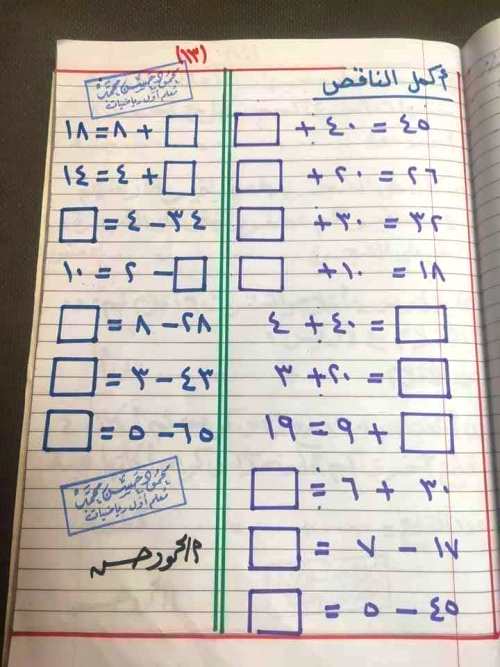 (١٣)
أكمل الناقص
٤٥ = ٤٠ + □
٢٦ = ٢٠ + □
٣٢ = ٣٠ + □
١٨ = ١٠ + □
□ = ٤٠ + ٤
□ = ٢٠ + ٣
□ + ٩ = ١٩
٣٠ + ٦ = □
١٧ − ٧ = □
٤٥ − ٥ = □
معلم أول رياضيات
□ + ٨ = ١٨
□ + ٤ = ١٤
٣٤ − ٤ = □
□ − ٢ = ١٠
٢٨ − ٨ = □
٤٣ − ٣ = □
٦٥ − ٥ = □
معلم أول رياضيات